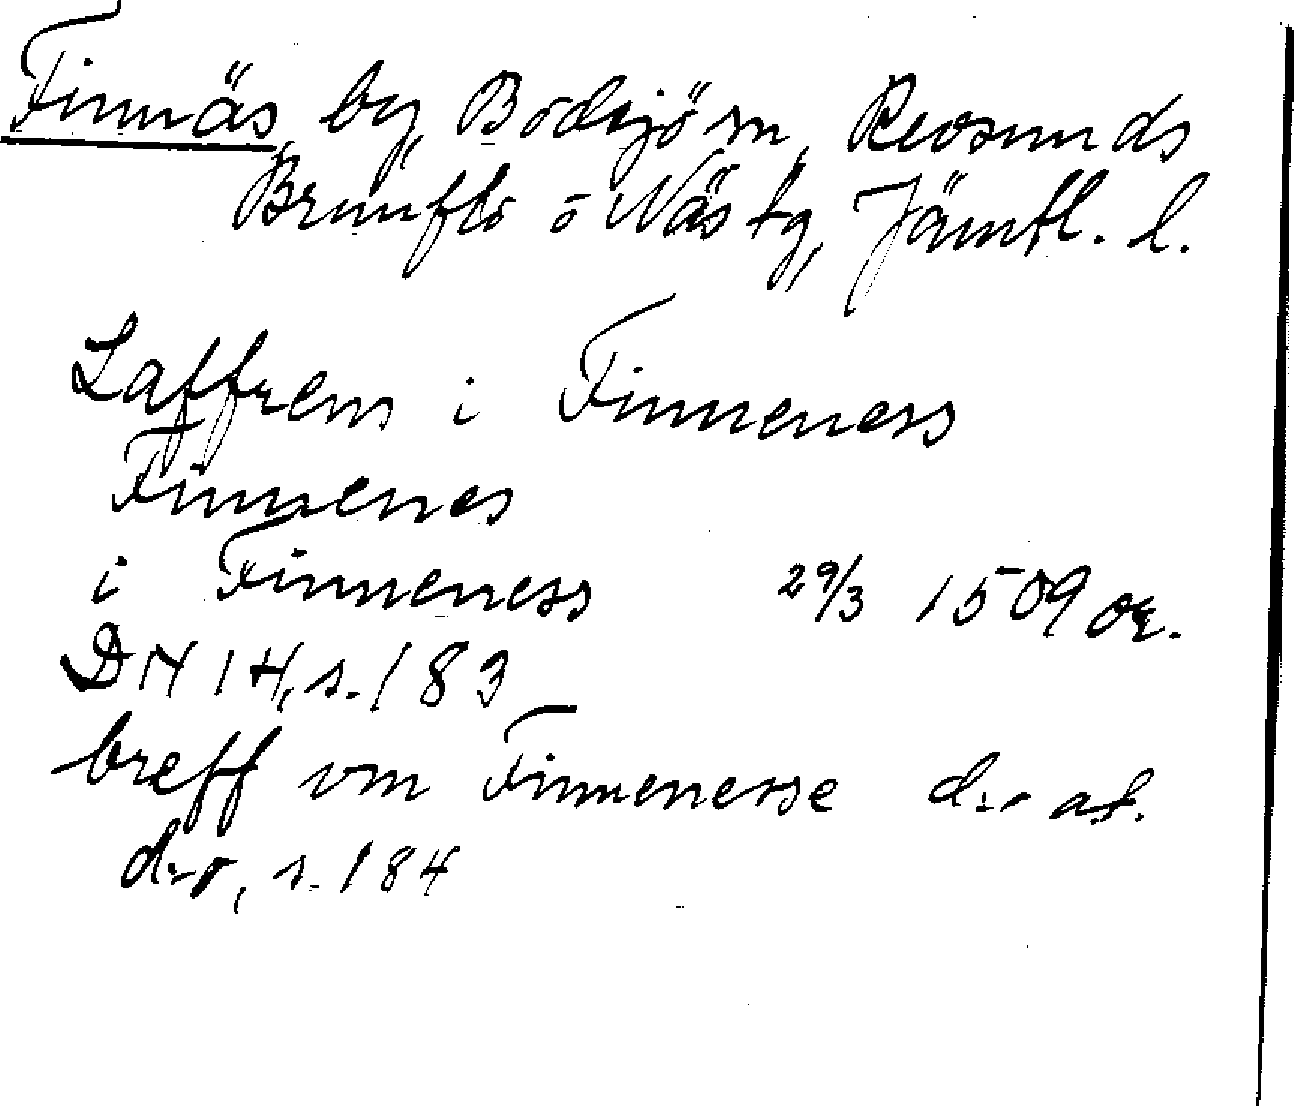 Finnäs, by, Bodsjö sn, Revsunds
Brunflo o Näs tg, Jämtl. l.
Laffrens i Finneness
Finnenes
i Finneness 29/3 1509 or.
DN 14, s. 183
breff vm Finnenesse d:o af.
d:o, s. 184